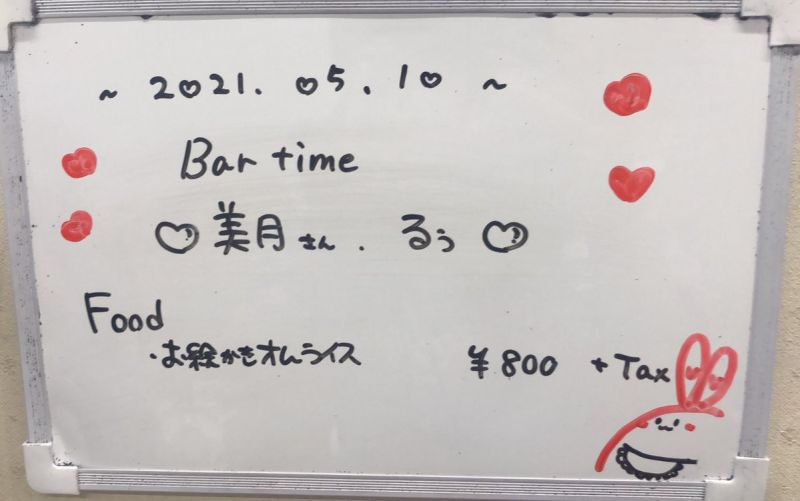 ~ 2021. 05. 10 ~
Bar time
♡ 美月さん . るぅ ♡
Food
・お絵かきオムライス ¥800 +Tax